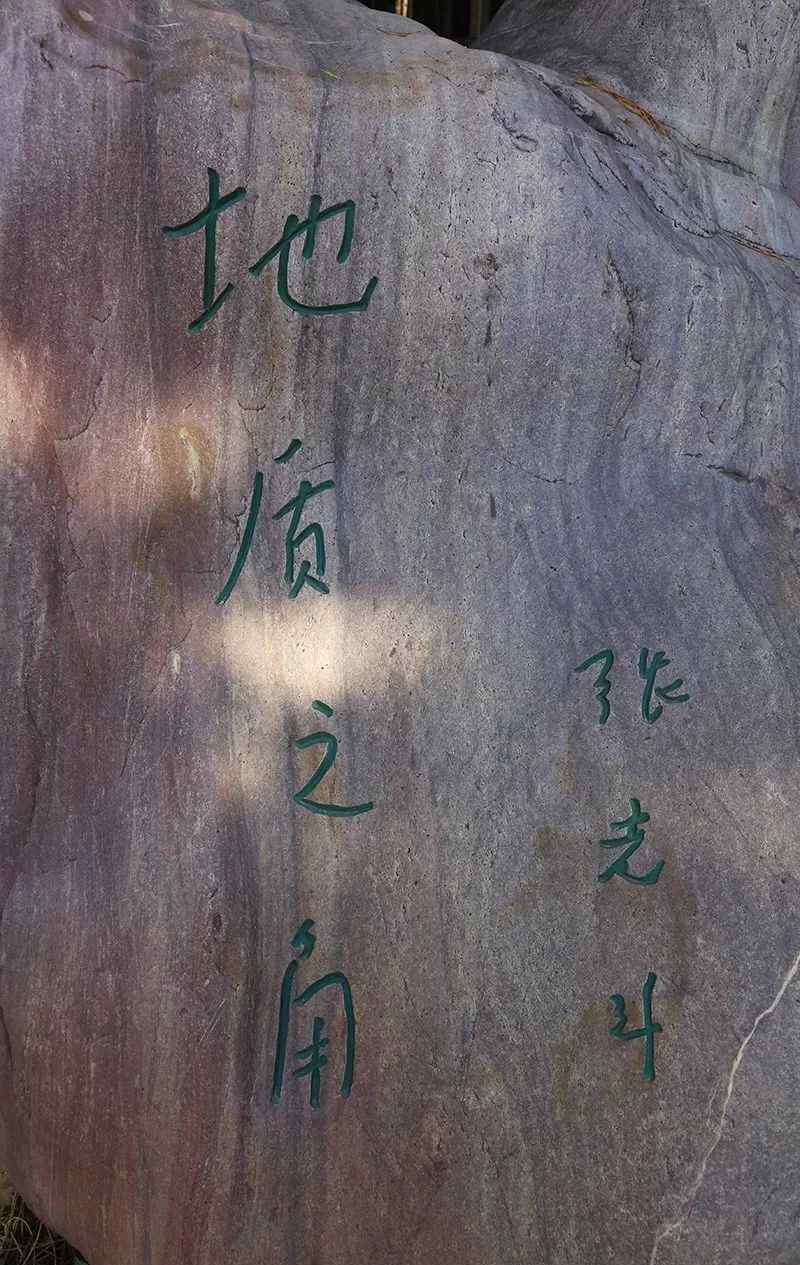 地质之角
张光斗